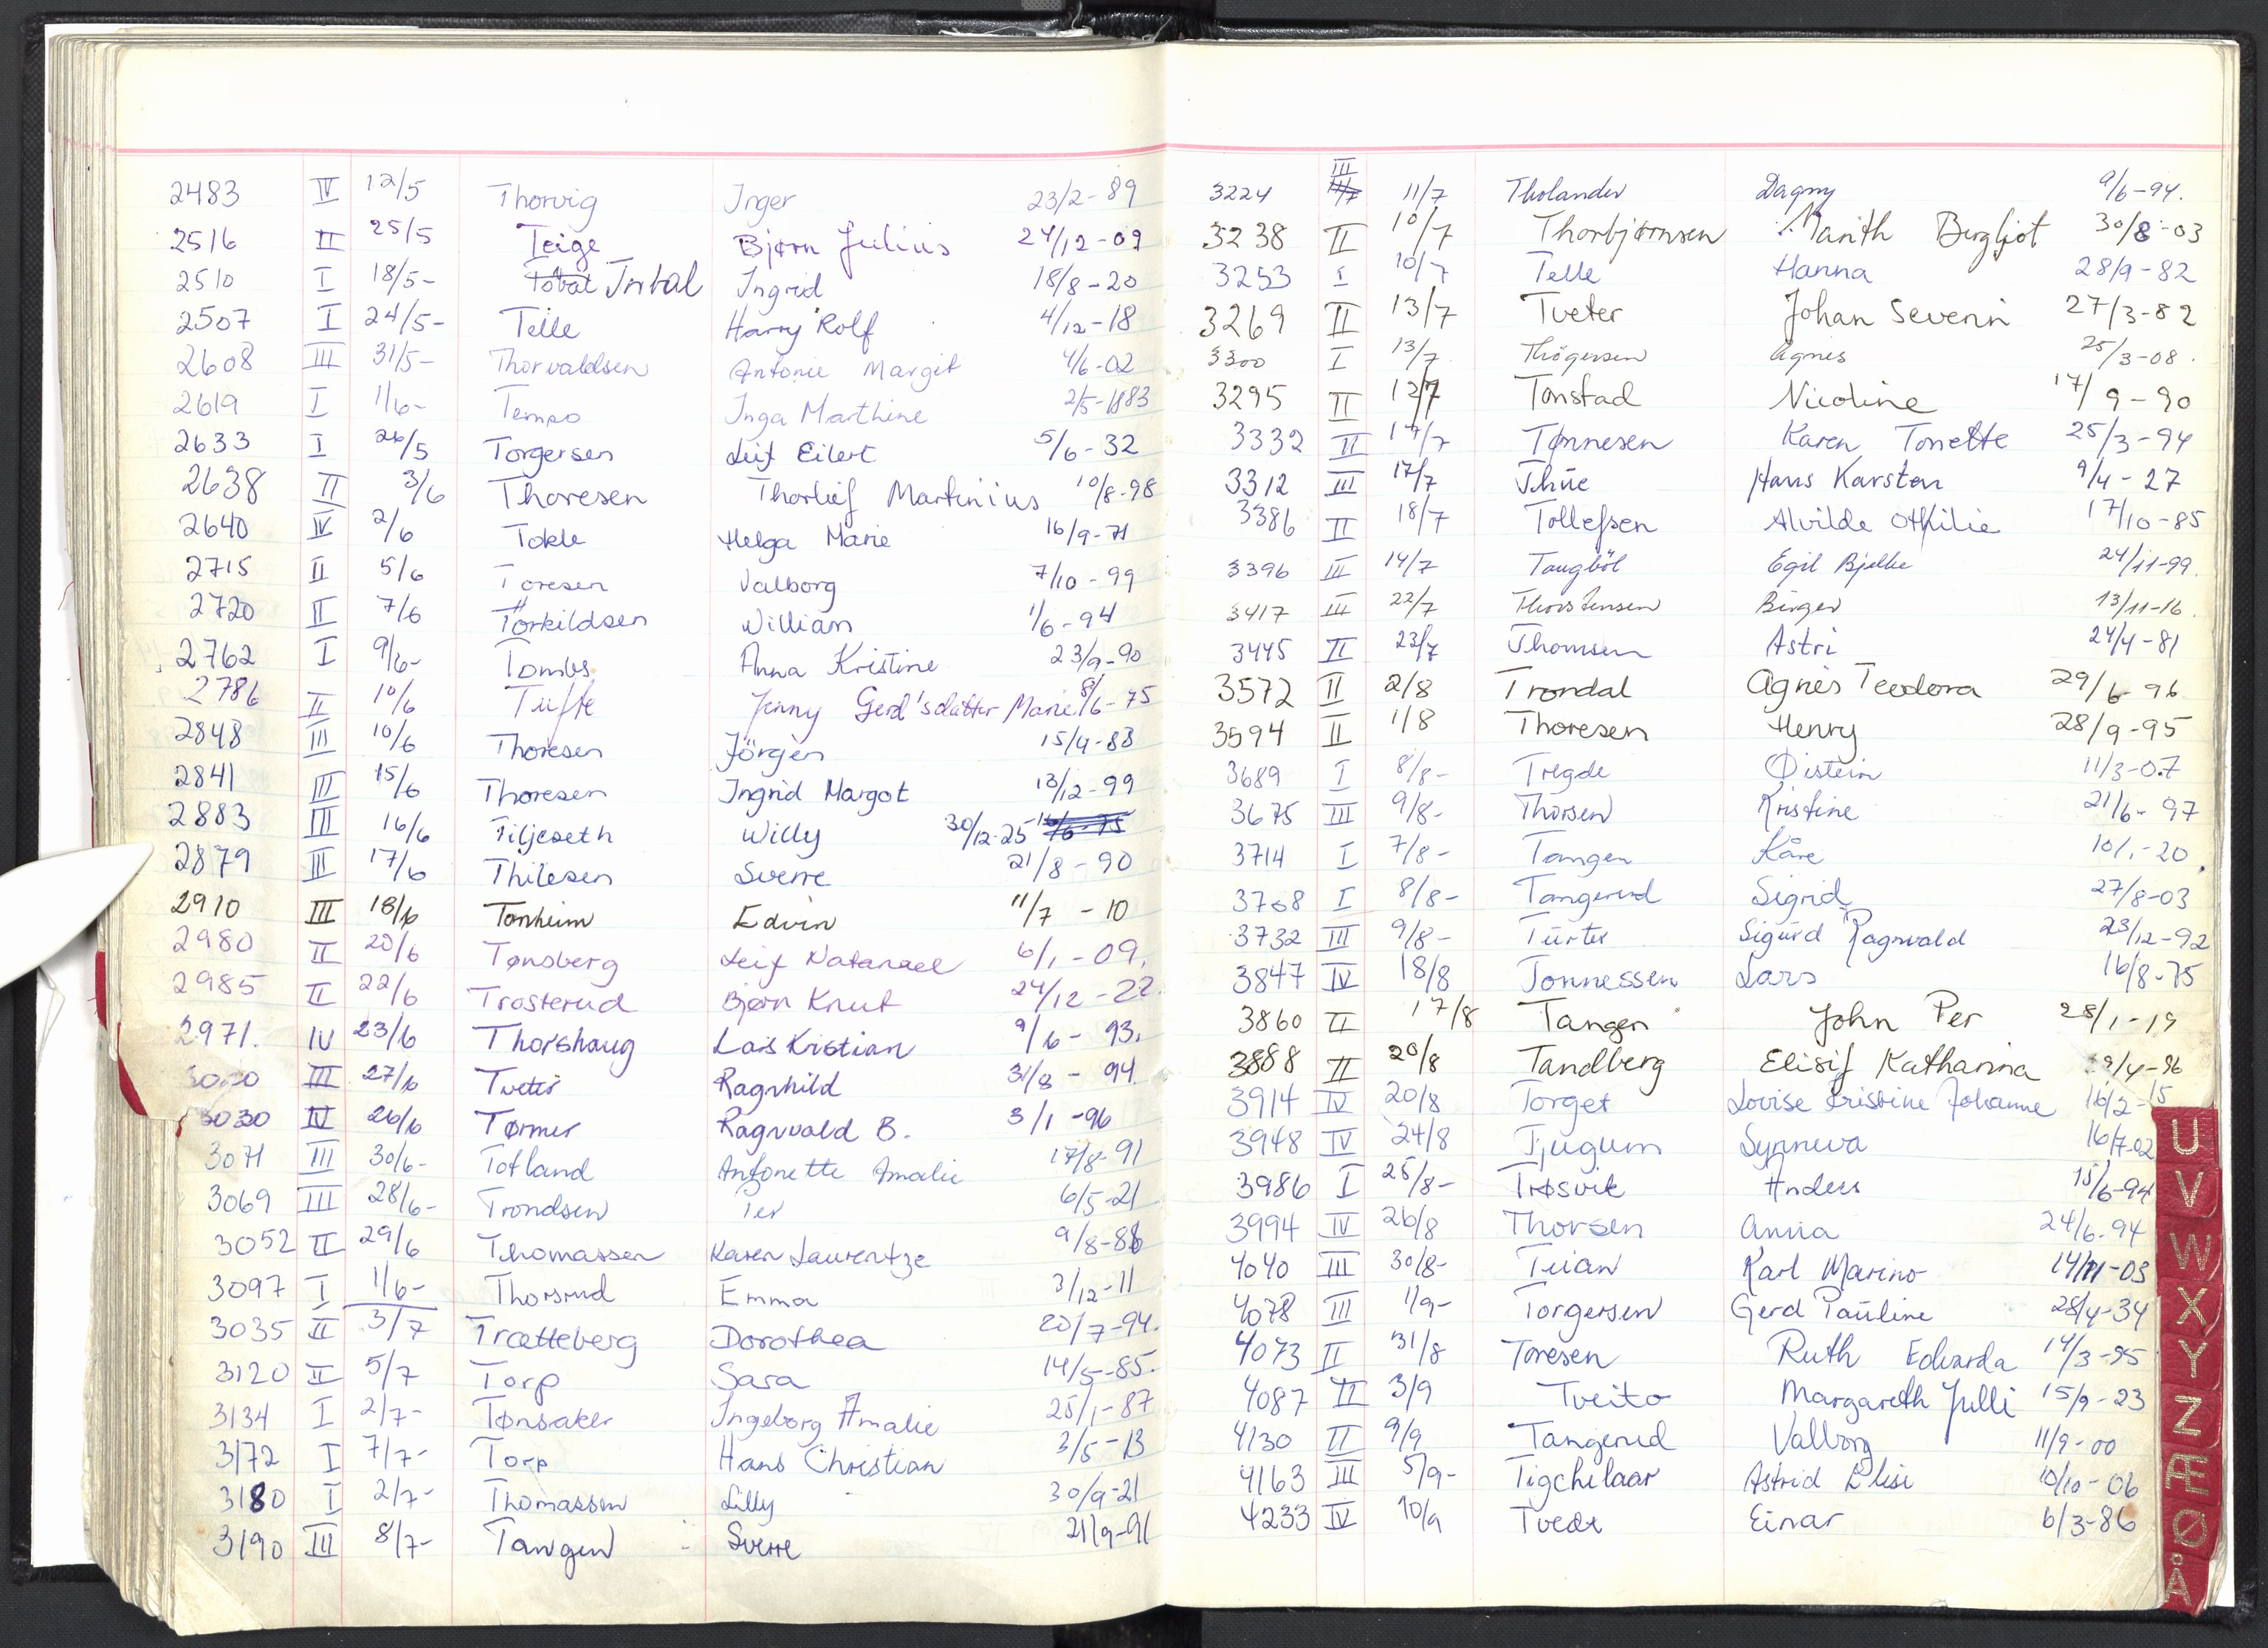 2483 IV 12/5 Thorvig Inger 23/2-89
2516 II 25/5 Teige Bjørn Julius 24/12-09
2510 I 18/5- Tobat Ingrid 18/8-20
2507 I 24/5- Telle Harry Rolf 4/12-18
2608 III 31/5- Thorvaldsen Antonie Margit 4/6-02
2619 I 1/6- Tempo Inga Marthine 2/5-1883
2633 I 26/5 Torgersen Leif Eilert 5/6-32
2638 II 3/6 Thoresen Thorlief Martinius 10/8-98
2640 IV 2/6 Tokle Helga Marie 16/9-71
2715 II 5/6 Toresen Valborg 7/10-99
2720 II 7/6 Törkildsen William 1/6-94
2762 I 9/6- Tombs Anna Kristine 23/9-90
2786 II 10/6 Tufte Jenny Gerd'sdatter Marie 8/6-75
2848 III 10/6 Thoresen Jörgen 15/9-88
2841 III 15/6 Thoresen Ingrid Margot 13/12-99
2883 III 16/6 Tiljeseth Willy 30/12-25
2879 III 17/6 Thilesen Sverre 21/8-90
2910 III 18/6 Tonheim Edvin 11/7-10
2980 II 20/6 Tønsberg Leif Natanael 6/1-09.
2985 II 22/6 Trosterud Bjørn Knut 24/12-22.
2971. IV 23/6 Thorshaug Lars Kristian 9/6-93.
III 27/6 Tveter Ragnhild 31/8-94
3030 IV 26/6 Tørmer Ragnvald B. 3/1-96
3071 III 30/6- Totland Antonette Amalie 17/8-91
3069 III 28/6- Trondsen Per 6/5-21
3052 II 29/6 Thomassen Karen Laurentze 9/8-88
3097 I 1/6- Thorsrud Emma 3/12-11
3035 II 3/7 Trætteberg Dorothea 20/7-94.
3120 II 5/7 Torp Sara 14/5-85.
3134 I 2/7- Tønsaker Ingeborg Amalie 25/1-87
3172 I 7/7- Torp Hans Christian 3/5-13
3180 I 2/7- Thomassen Lilly 30/9-21
3190 III 8/7- Tangen Sverre 21/9-91
3224 III 11/7 Tholander Dagny 9/6-94.
3238 II 10/7 Thorbjørnsen Marith Bergljot 30/8-03
3253 I 10/7 Telle Hanna 28/9-82
3269 II 13/7 Tveter Johan Severin 27/3-82
3300 I 13/7 Thögersen Agnes 25/3-08.
3295 II 12/7 Tonstad Nicoline 17/9-90
3332 II 17/7 Tønnesen Karen Tonette 25/3-94
3312 III 17/7 Thue Hans Karsten 9/4-27
3386 II 18/7 Tollefsen Alvilde Othilie 17/10-85
3396 III 14/7 Taugböl Egil Bjelke 24/11-99.
3417 III 22/7 Thorstensen Birger 13/11-16.
3445 II 23/7 Thomsen Astri 24/4-81
3572 II 2/8 Trondal Agnes Teodora 29/6-96
3594 II 1/8 Thoresen Henry 28/9-95
3689 I 8/8- Tregde Øistein 11/3-07
3675 III 9/8- Thorsen Kristine 21/6-97
3714 I 7/8- Tangen Kåre 10/1-20.
3708 I 8/8- Tangerud Sigrid 27/8-03
3732 III 9/8- Turter Sigurd Ragnvald 23/12-92
3847 IV 18/8 Tonnessen Lars 16/8-75
3860 II 17/8 Tangen John Per 28/1-19
3888 II 20/8 Tandberg Elisif Katharina 29/4-96
3914 IV 20/8 Torget Lovise Kristine Johanne 16/2-15
3948 IV 24/8 Tjugum Synneva 16/7-02
3986 I 25/8- Trøsvik Anders 15/6-94
3994 IV 26/8 Thorsen Anna 24/6-94
4040 III 30/8- Tuan Karl Marino 14/11-03
4078 III 1/9- Torgersen Gerd Pauline 28/4-34
4073 II 31/8 Toresen Ruth Edvarda 14/3-95
4087 II 3/9 Tveito Margareth Julli 15/9-23
4130 II 9/9 Tangerud Valborg 11/9-00
4163 III 5/9- Tigchelaar Astrid Elisi 10/10-06
4233 IV 10/9 Tvedt Einar 6/3-86
U
V
W
X
Y
Z
Æ
Ø
Å